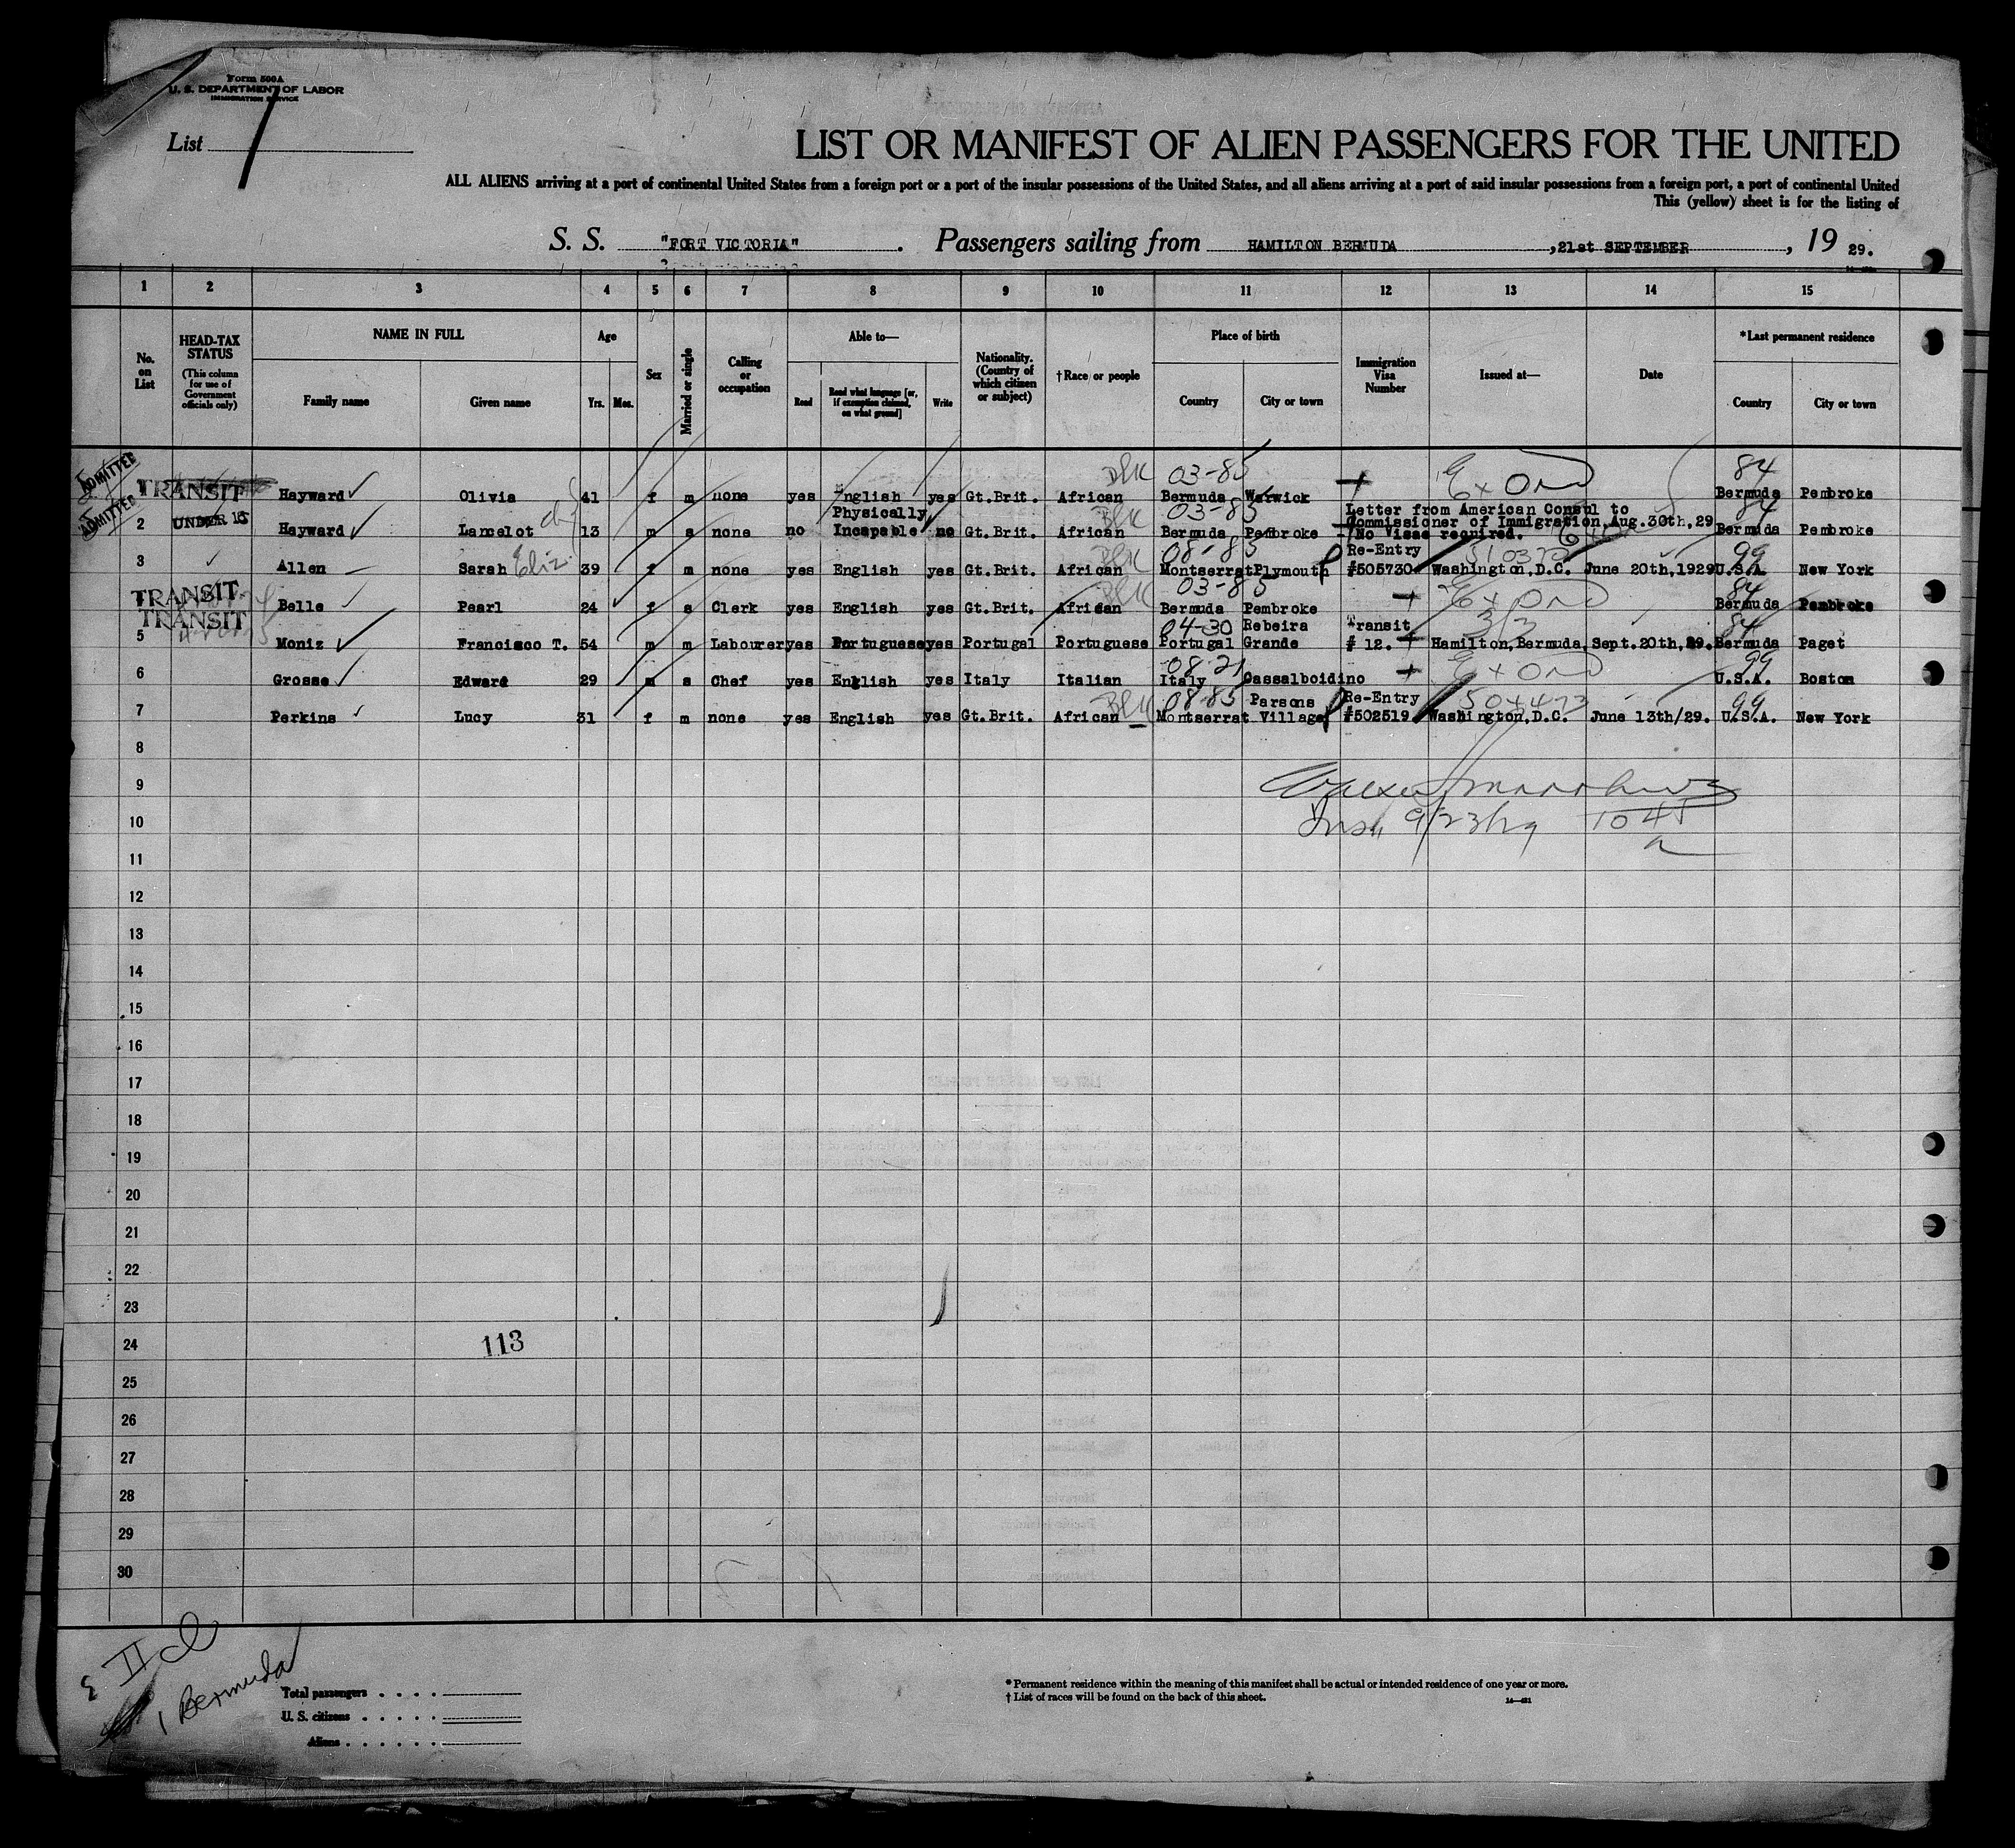 Form 500A
U. S. DEPARTMENT OF LABOR
IMMIGRATION SERVICE
List 1
LIST OR MANIFEST OF ALIEN PASSENGERS FOR THE UNITED
ALL ALIENS arriving at a port of continental United States from a foreign port or a port of the insular possessions of the United States, and all aliens arriving at a port of said insular possessions from a foreign port, a port of continental United
This (yellow) sheet is for the listing of
S. S. "FORT VICTORIA". Passengers sailing from HAMILTON BERMUDA, 21st SEPTEMBER, 19 29.
1 2 3 4 5 6 7 8 9 10 11 12 13 14 15
No. on List
HEAD-TAX STATUS (This column for use of Government officials only)
NAME IN FULL Family name Given name
Age Yrs. Mos.
Sex
Married or single
Calling or occupation
Able to— Read Read what language [or, if exemption claimed, on what ground] Write
Nationality. (Country of which citizen or subject)
†Race or people
Place of birth Country City or town
Immigration Visa Number
Issued at—
Date
*Last permanent residence Country City or town
ADMITTED
ADMITTED
BLK 03-85 84
1 TRANSIT Hayward Olivia 41 f m none yes English yes Gt.Brit. African Bermuda Warwick Bermuda Pembroke
Physically BLK 03-85 Letter from American Consul to 84
Commissioner of Immigration, Aug.30th,29
2 UNDER 16 Hayward Lancelot 13 m s none no Incapable no Gt.Brit. African Bermuda Pembroke No Visae required. Bermuda Pembroke
BLK 08-85 Re-Entry 99
3 Allen Sarah Eliz. 39 f m none yes English yes Gt.Brit. African Montserrat Plymouth #505730 Washington,D.C. June 20th,1929 U.S.A. New York
BLK 03-85 84
TRANSIT Belle Pearl 24 f s Clerk yes English yes Gt.Brit. African Bermuda Pembroke Bermuda Pembroke
TRANSIT 04-30 Rebeira Transit 84
5 Moniz Francisco T. 54 m m Labourer yes Portuguese yes Portugal Portuguese Portugal Grande # 12. Hamilton,Bermuda, Sept.20th, 29. Bermuda Paget
08-21 99
6 Grosse Edward 29 m s Chef yes English yes Italy Italian Italy Cassalboidino U.S.A. Boston
BLK 08-85 Parsons Re-Entry 99
7 Perkins Lucy 31 f m none yes English yes Gt.Brit. African Montserrat Village #502519 Washington,D.C. June 13th/29. U.S.A. New York
8
9
10 9/23/29 10 45
11
12
13
14
15
16
17
18
19
20
21
22
23
24 113
25
26
27
28
29
30
II
1 Bermuda
Total passengers
U. S. citizens
Aliens
* Permanent residence within the meaning of this manifest shall be actual or intended residence of one year or more.
† List of races will be found on the back of this sheet.